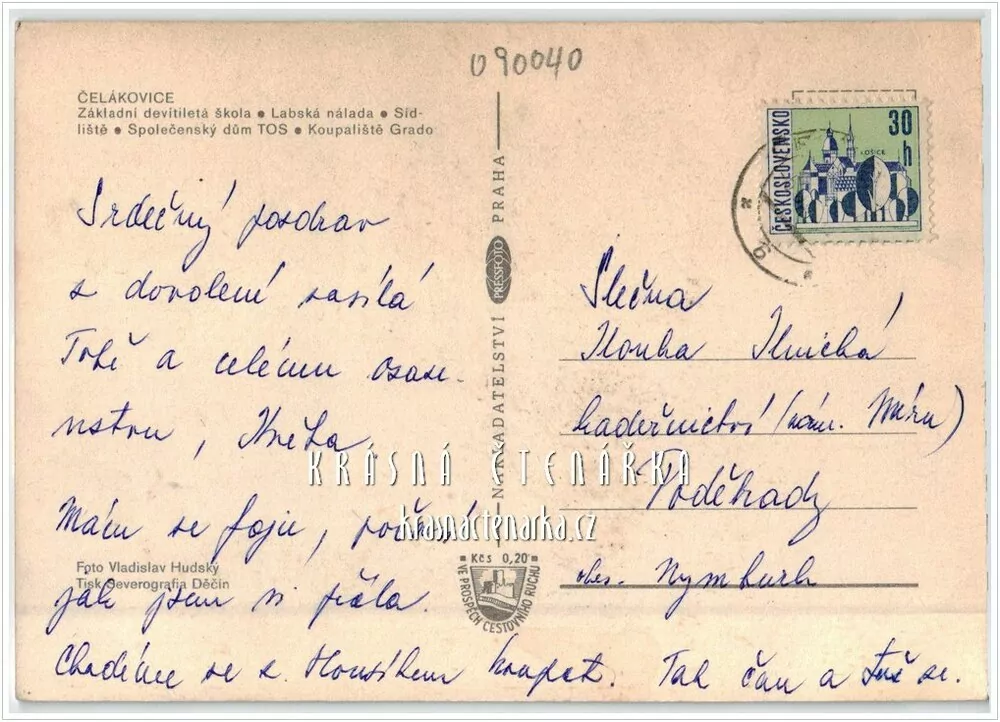 090040
ČELÁKOVICE
Základní devítiletá škola ● Labská nálada ● Síd-
liště ● Společenský dům TOS ● Koupaliště Grado
Srdečný pozdrav
s dovolení zasílá
Tobě a celému osaze-
nstvu, Květa
Mám se fajn, počasí
jak jsem si přála.
Chodíme se s Honzíkem koupat. Tak čau a těš se.
Foto Vladislav Hudský
Tisk Severografia Děčín
NAKLADATELSTVÍ PRESSFOTO PRAHA
Kčs 0,20
VE PROSPĚCH CESTOVNÍHO RUCHU
ČESKOSLOVENSKO
30
h
KOŠICE
Slečna
Ilonka
kadeřnictví (nám. Míru)
Poděbrady
okr. Nymburk
KRÁSNÁ ČTENÁŘKA
krasnactenarka.cz